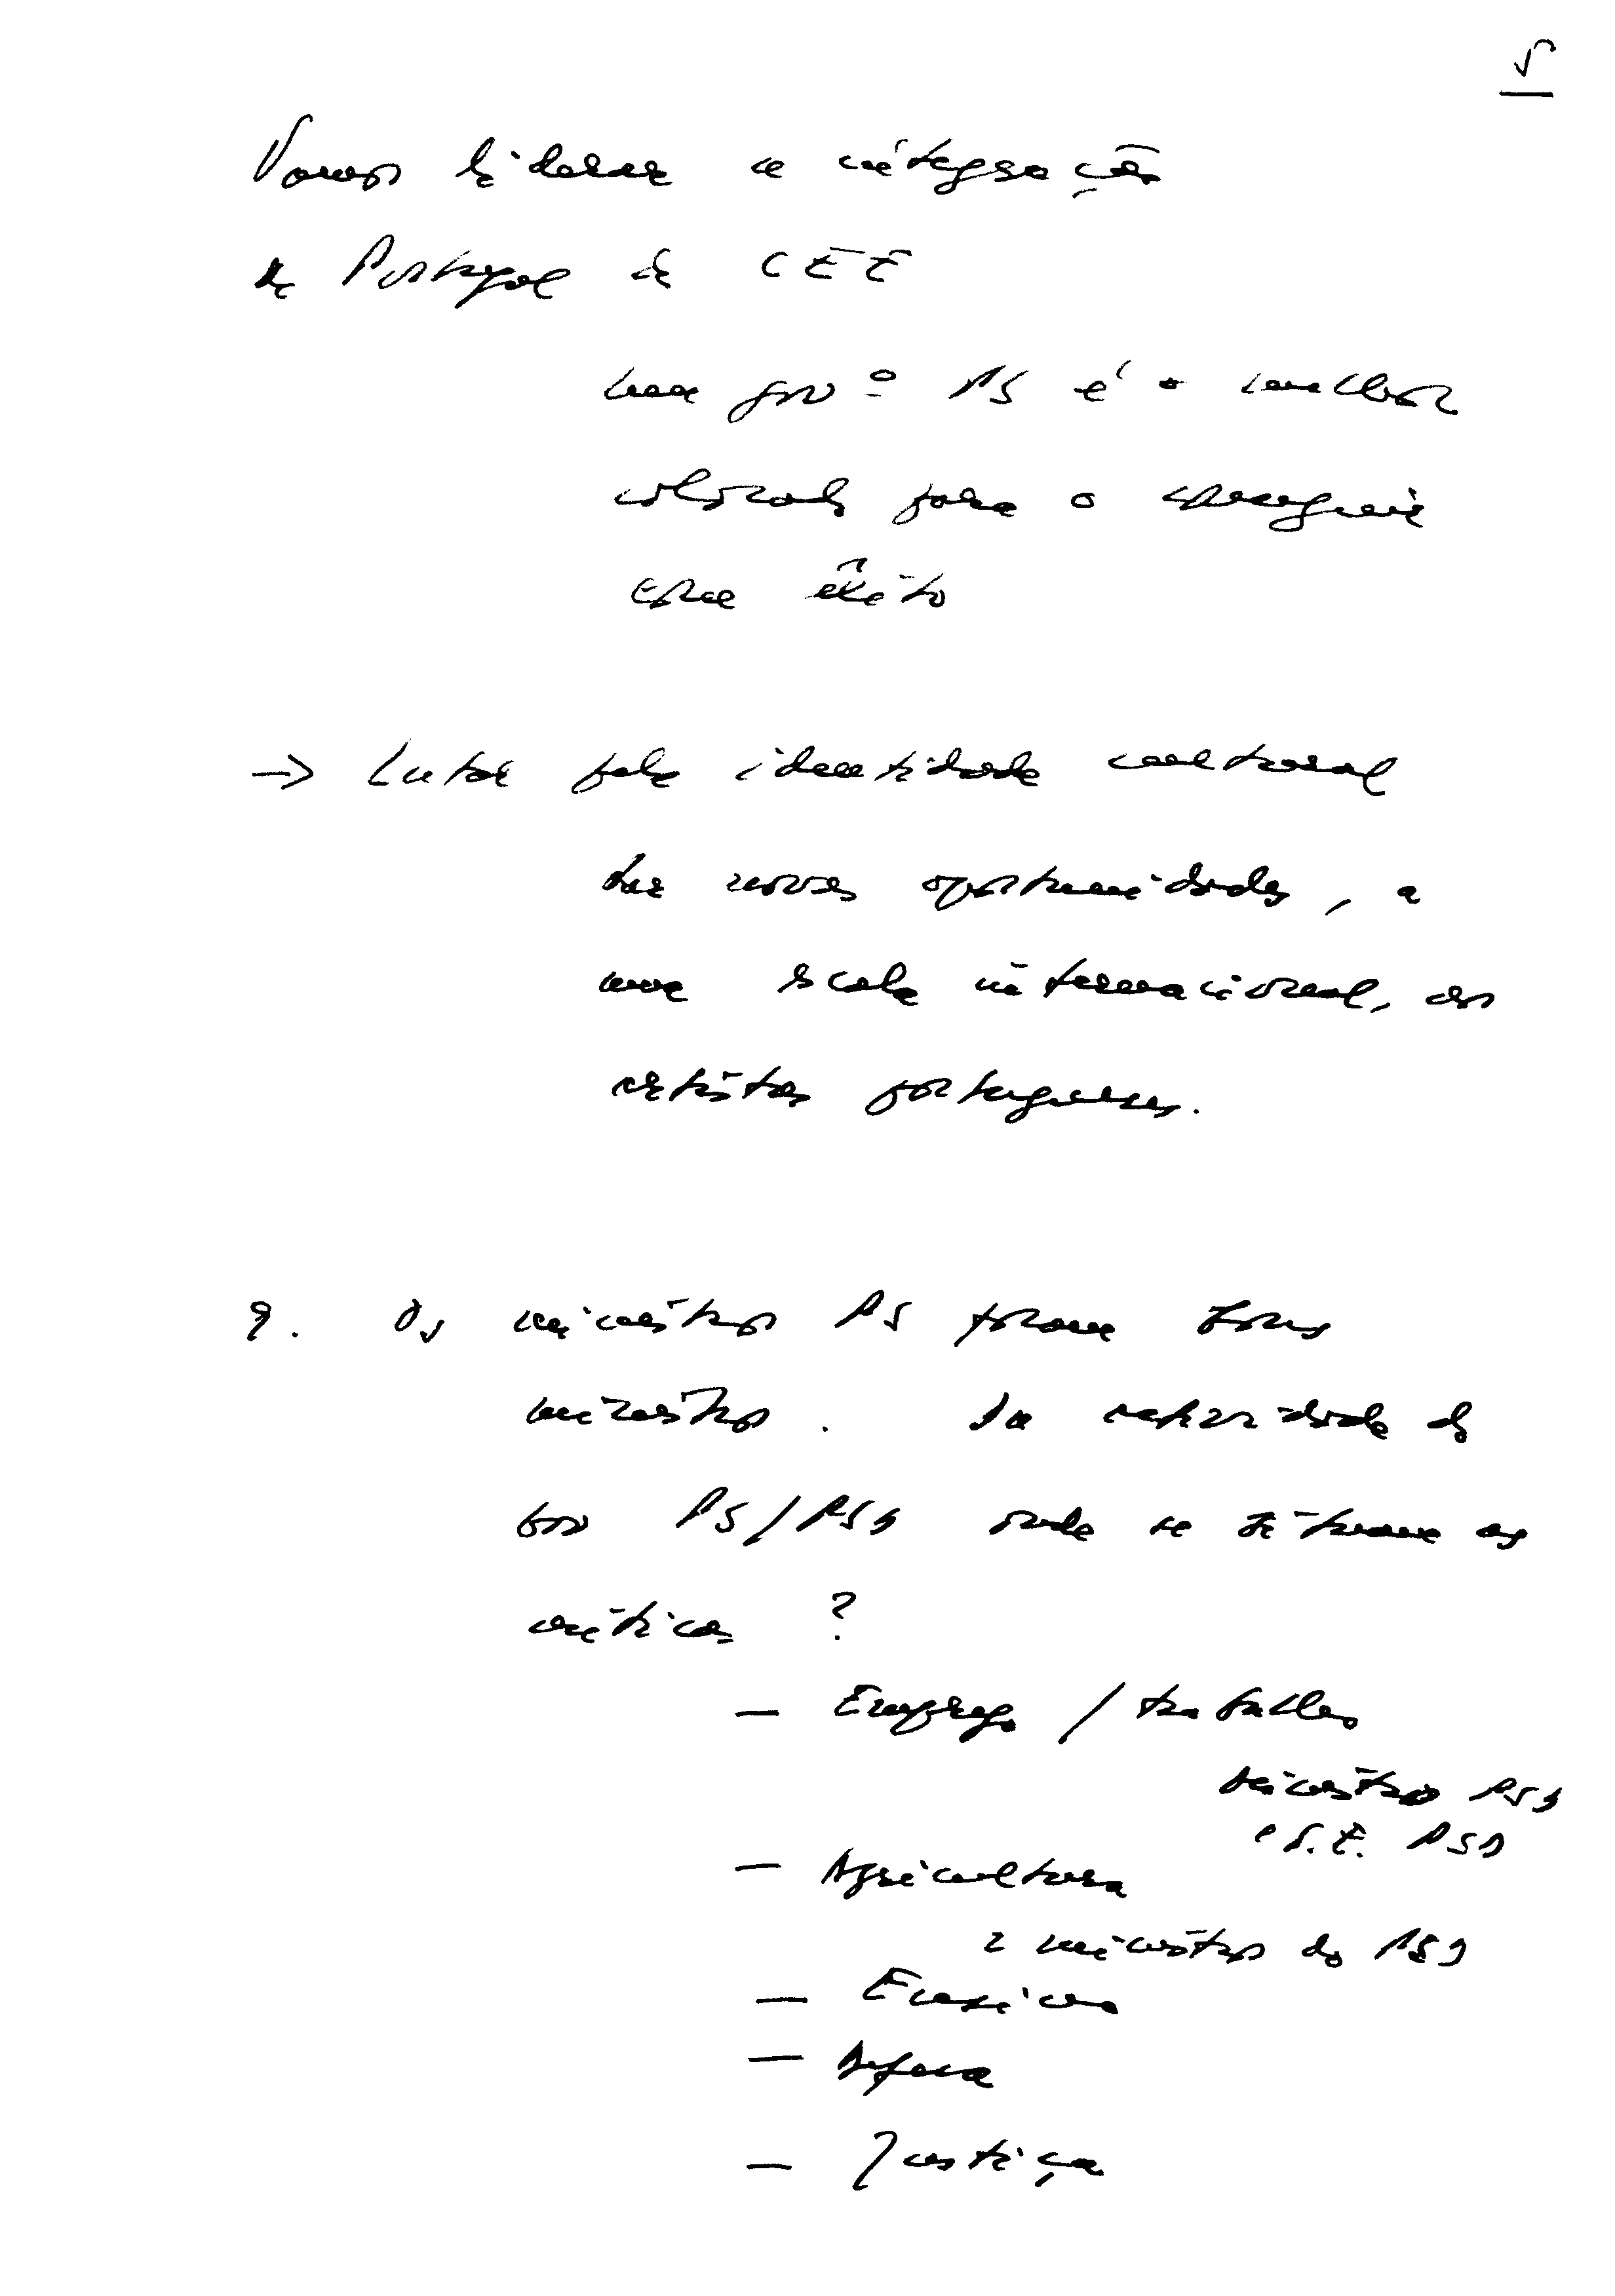 5
Vamos liderar a integração
de Portugal à CEE
um govº PS é o melhor
colocado para o conseguir
com êxito
→ Lutar pela identidade cultural
dar novas oportunidades, a
uma escala internacional, aos
artistas portugueses.
9. Os ministros PS foram bons
ministros. Na actividade do
Gov PS/PSD onde se situam as
críticas ?
— Emprego / trabalho
Ministro PSD
e S.E. PSD
— Agricultura
2 ministros do PSD
— Ensino
— Defesa
— Justiça